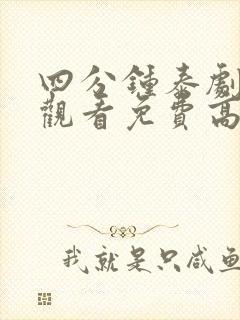 四分鍾泰劇
觀看免費高
我就是只咸鱼